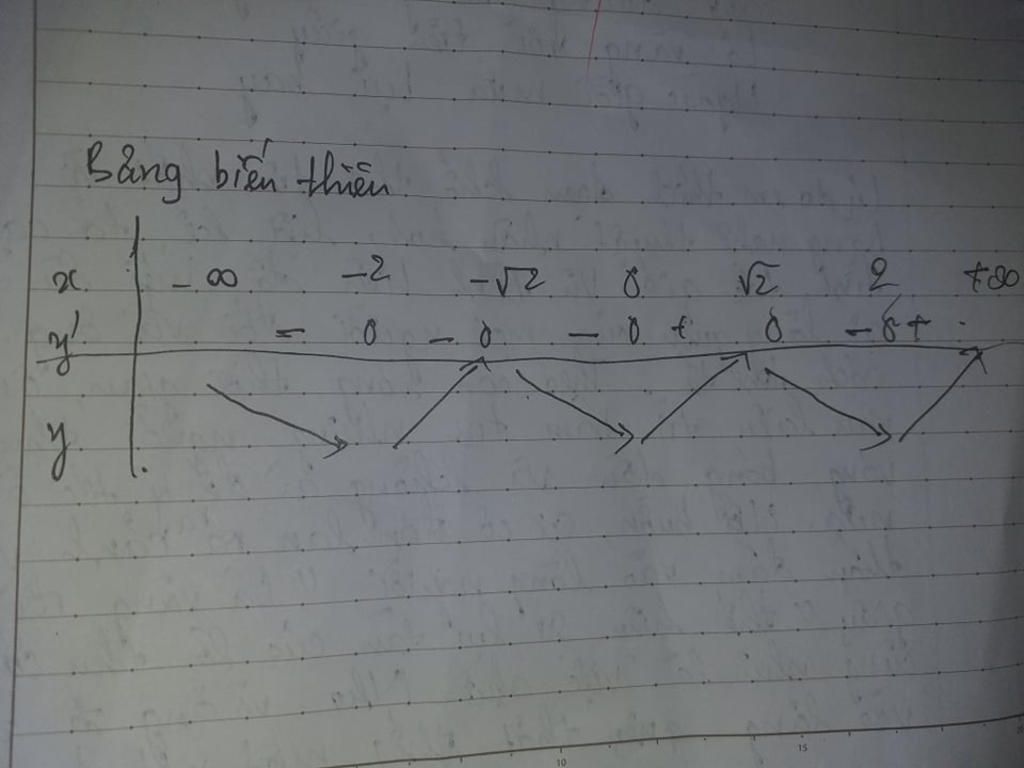 Bảng biến thiên
x -∞ -2 -√2 0 √2 2 +∞
y' - 0 - 0 - 0 + 0 - 0 +
y
10 15